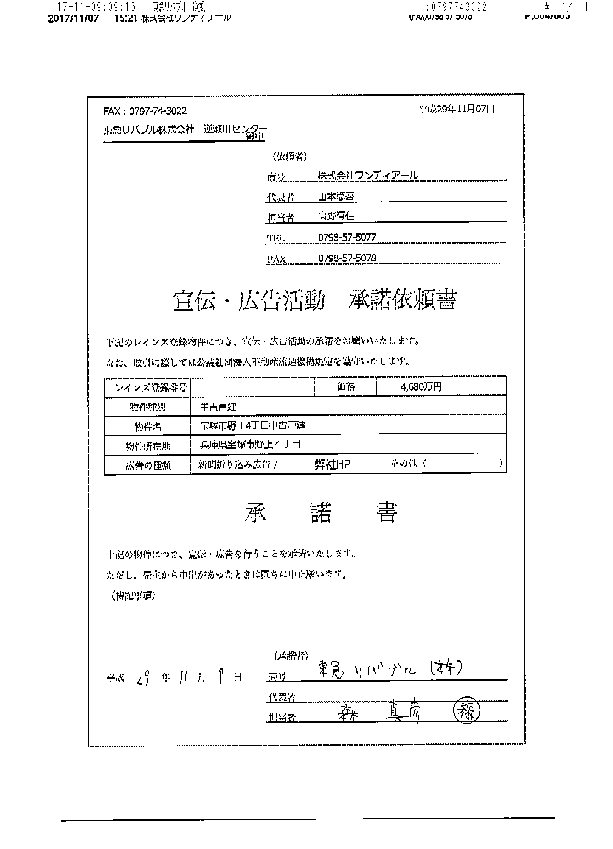 17-11-09;09:13
2017/11/07 15:21 株式会社ワンディアール
;0797743022
FAX:0797-74-3022
平成29年11月07日
東急リバブル株式会社 逆瀬川センター
御中
(依頼者)
商号 株式会社ワンディアール
代表者
担当者
TEL 0798-57-5077
FAX 0798-57-5078
宣伝・広告活動 承諾依頼書
下記のレインズ登録物件につき、宣伝・広告活動の承諾をお願いいたします。
なお、取引に際しては公益社団法人不動産流通機構規定を遵守いたします。
レインズ登録番号 価格 4,680万円
物件種別 中古戸建
物件名 宝塚市野上4丁目中古戸建
物件所在地 兵庫県宝塚市野上4丁目
広告の種類 新聞折り込み広告 / 弊社HP その他 ( )
承 諾 書
上記の物件につき、宣伝・広告を行うことを承諾いたします。
ただし、売主から申出があったときは直ちに中止願います。
(特記事項)
(承諾者)
平成 29 年 11 月 9 日
商号 東急リバブル(株)
代表者
担当者 森 真
森